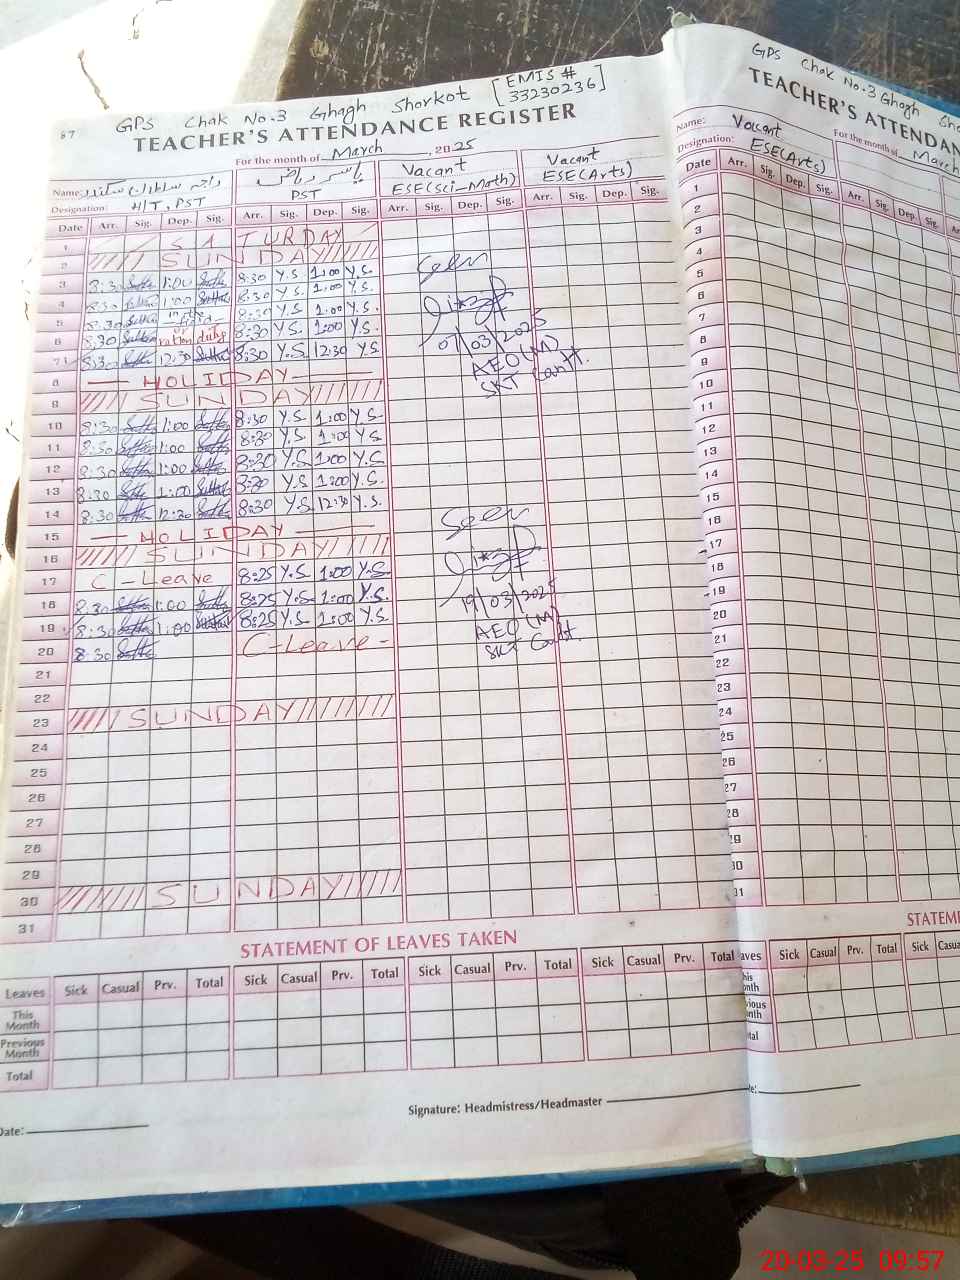 67 GPS Chak No.3 Ghagh Shorkot [EMIS # 33230236]
TEACHER'S ATTENDANCE REGISTER
For the month of March, 2025
Name: راجہ سلطان سکندر یاسر ریاض Vacant Vacant
Designation: H/T, PST PST ESE(Sci-Math) ESE(Arts)
Date Arr. Sig. Dep. Sig. Arr. Sig. Dep. Sig. Arr. Sig. Dep. Sig. Arr. Sig. Dep. Sig.
1 SATURDAY
2 SUNDAY
3 8:30 1:00 8:30 Y.S 1:00 Y.S.
4 8:30 1:00 8:30 Y.S 1:00 Y.S.
5 8:30 8:30 Y.S. 1:00 Y.S.
6 8:30 duty 8:30 Y.S. 1:00 Y.S.
7 8:30 12:30 8:30 Y.S 12:30 Y.S
8 HOLIDAY
9 SUNDAY
10 8:30 1:00 8:30 Y.S 1:00 Y.S.
11 8:30 1:00 8:30 Y.S. 1:00 Y.S
12 8:30 1:00 8:30 Y.S. 1:00 Y.S.
13 8:30 1:00 8:30 Y.S 1:00 Y.S.
14 8:30 12:30 8:30 Y.S 12:30 Y.S.
15 HOLIDAY
16 SUNDAY
17 C-Leave 8:25 Y.S. 1:00 Y.S.
18 8:30 1:00 8:25 Y.S. 1:00 Y.S.
19 8:30 1:00 8:25 Y.S. 1:00 Y.S.
20 8:30 C-Leave-
21
22
23 SUNDAY
24
25
26
27
28
29
30 SUNDAY
31
Seen
07/03/2025
AEO(M)
SKT Cantt.
Seen
19/03/2025
AEO(M)
SKT Cantt.
STATEMENT OF LEAVES TAKEN
Leaves Sick Casual Prv. Total Sick Casual Prv. Total Sick Casual Prv. Total Sick Casual Prv. Total
This Month
Previous Month
Total
Signature: Headmistress/Headmaster
Date:
GPS Chak No.3 Ghagh
TEACHER'S ATTENDAN
For the month of March
Name: Vacant
Designation: ESE(Arts)
Date Arr. Sig. Dep. Sig.
1
2
3
4
5
6
7
8
9
10
11
12
13
14
15
16
17
18
19
20
21
22
23
24
25
26
27
28
29
30
31
STATEM
Sick Casual Prv. Total Sick
20-03-25 09:57